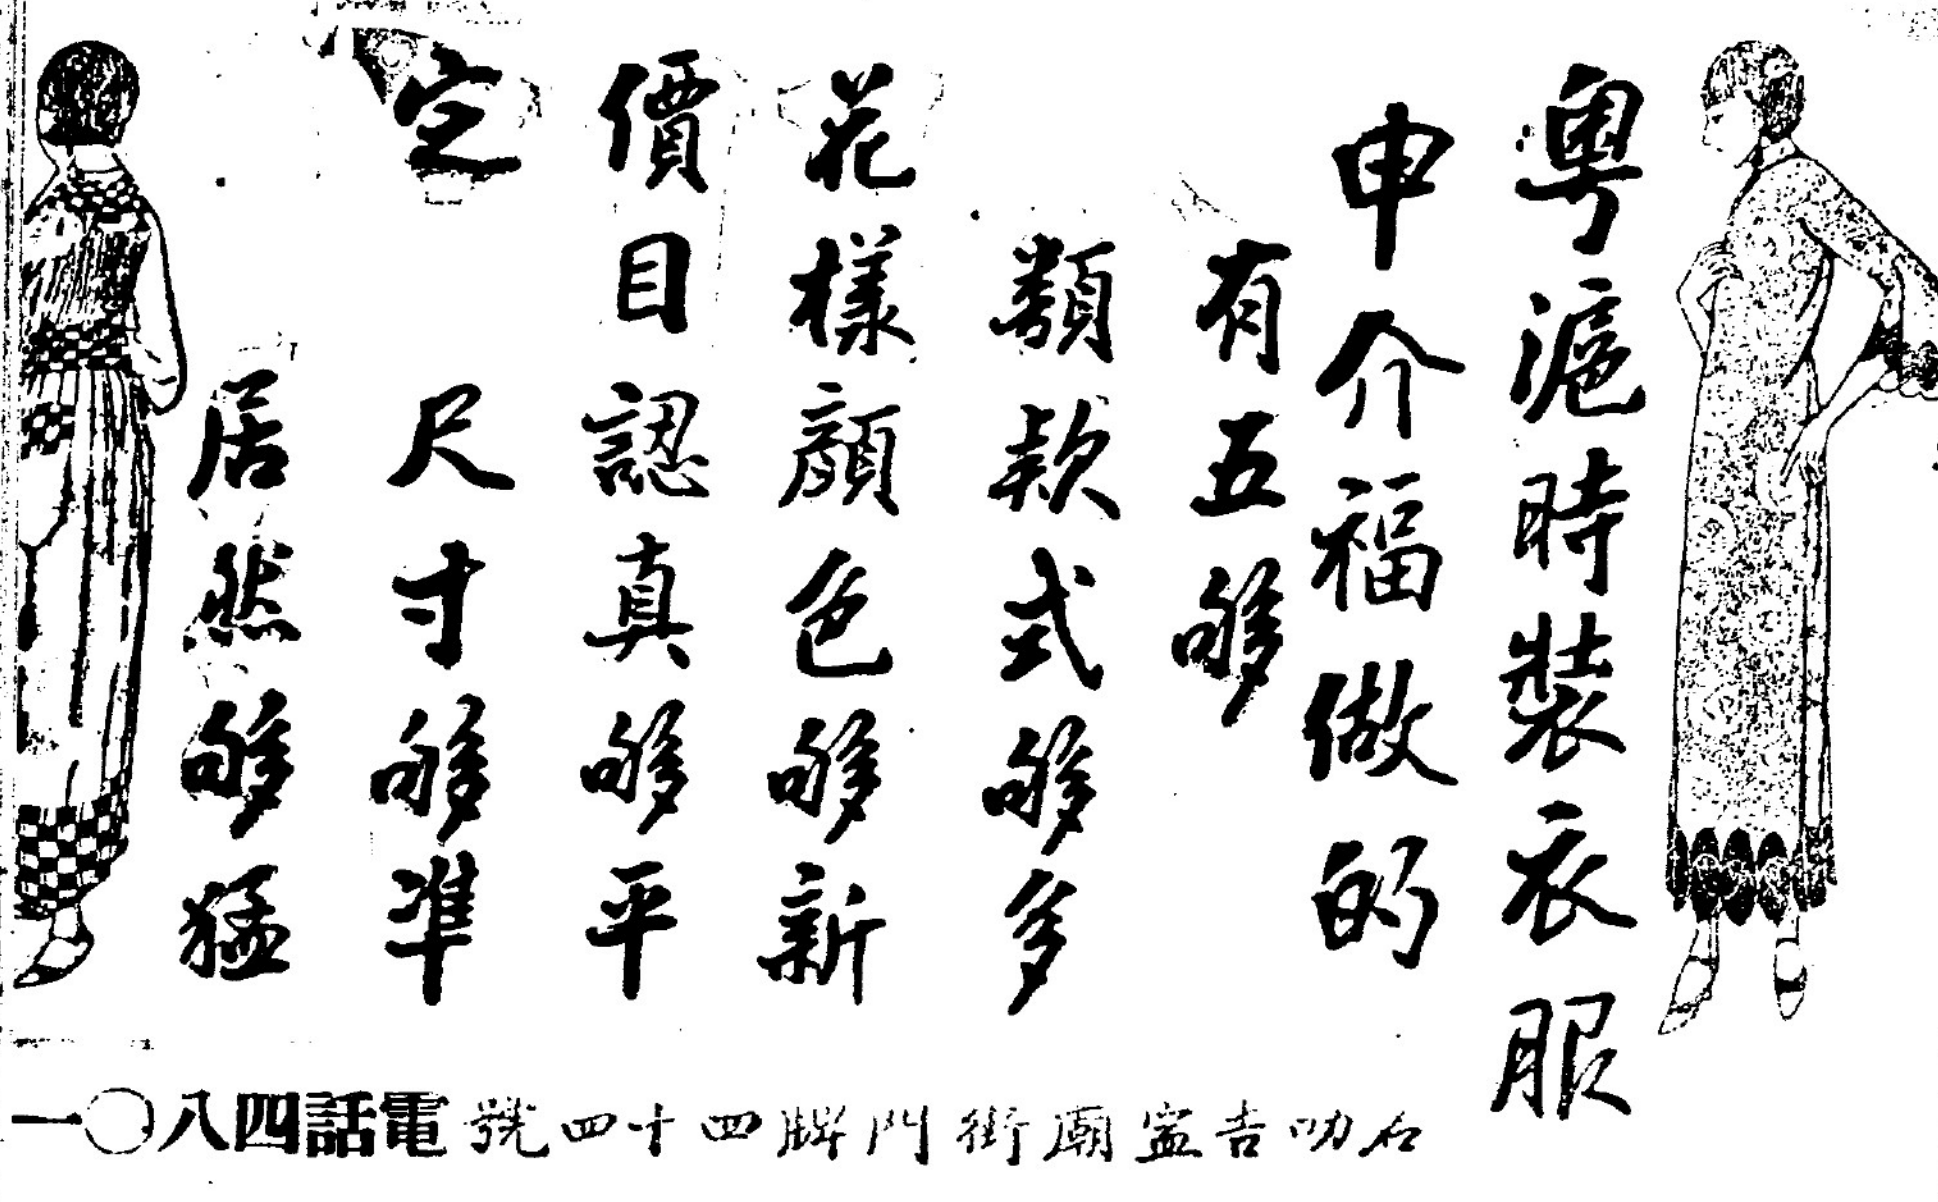 粵滬時裝衣服
申介福做的
有五够
類款式够多
花樣顔色够新
價目認真够平
定 尺寸够準
居然够猛
石叻吉寍廟街門牌四十四號
電話四八〇一